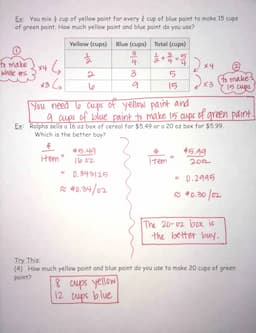 Ex: You mix 1/2 cup of yellow paint for every 3/4 cup of blue paint to make 15 cups
of green paint. How much yellow paint and blue paint do you use?
Yellow (cups) Blue (cups) Total (cups)
1/2 3/4 1/2 + 3/4 = 5/4
① to make whole #s x4 2 3 5 x4
x3 6 9 15 x3 ② to make 15 cups
You need 6 cups of yellow paint and
9 cups of blue paint to make 15 cups of green paint.
Ex: Ralphs sells a 16 oz box of cereal for $5.49 or a 20 oz box for $5.99.
Which is the better buy?
$/item = $5.49/16 oz
= 0.343125
≈ $0.34/oz
$/item = $5.99/20 oz
= 0.2995
≈ $0.30/oz
The 20-oz box is
the better buy.
Try This:
(4) How much yellow paint and blue paint do you use to make 20 cups of green
paint?
8 cups yellow
12 cups blue